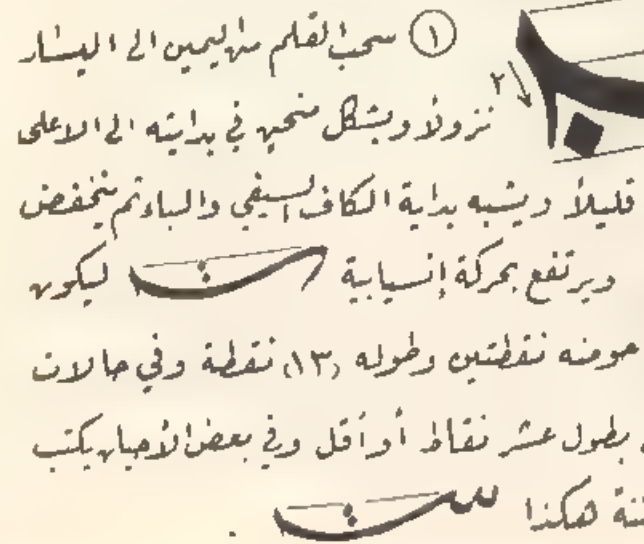 ① سحب القلم من اليمين الى اليسار
٢
نزولاً وبشكل منحني في بدايته الى الاعلى
قليلاً ويشبه بداية الكاف السيفي والباء ثم ينخفض
ويرتفع بحركة إنسيابية ليكون
حوضه نقطتين وطوله (١٣) نقطة وفي حالات
بطول عشر نقاط أو أقل وفي بعض الأحيان يكتب
هكذا .